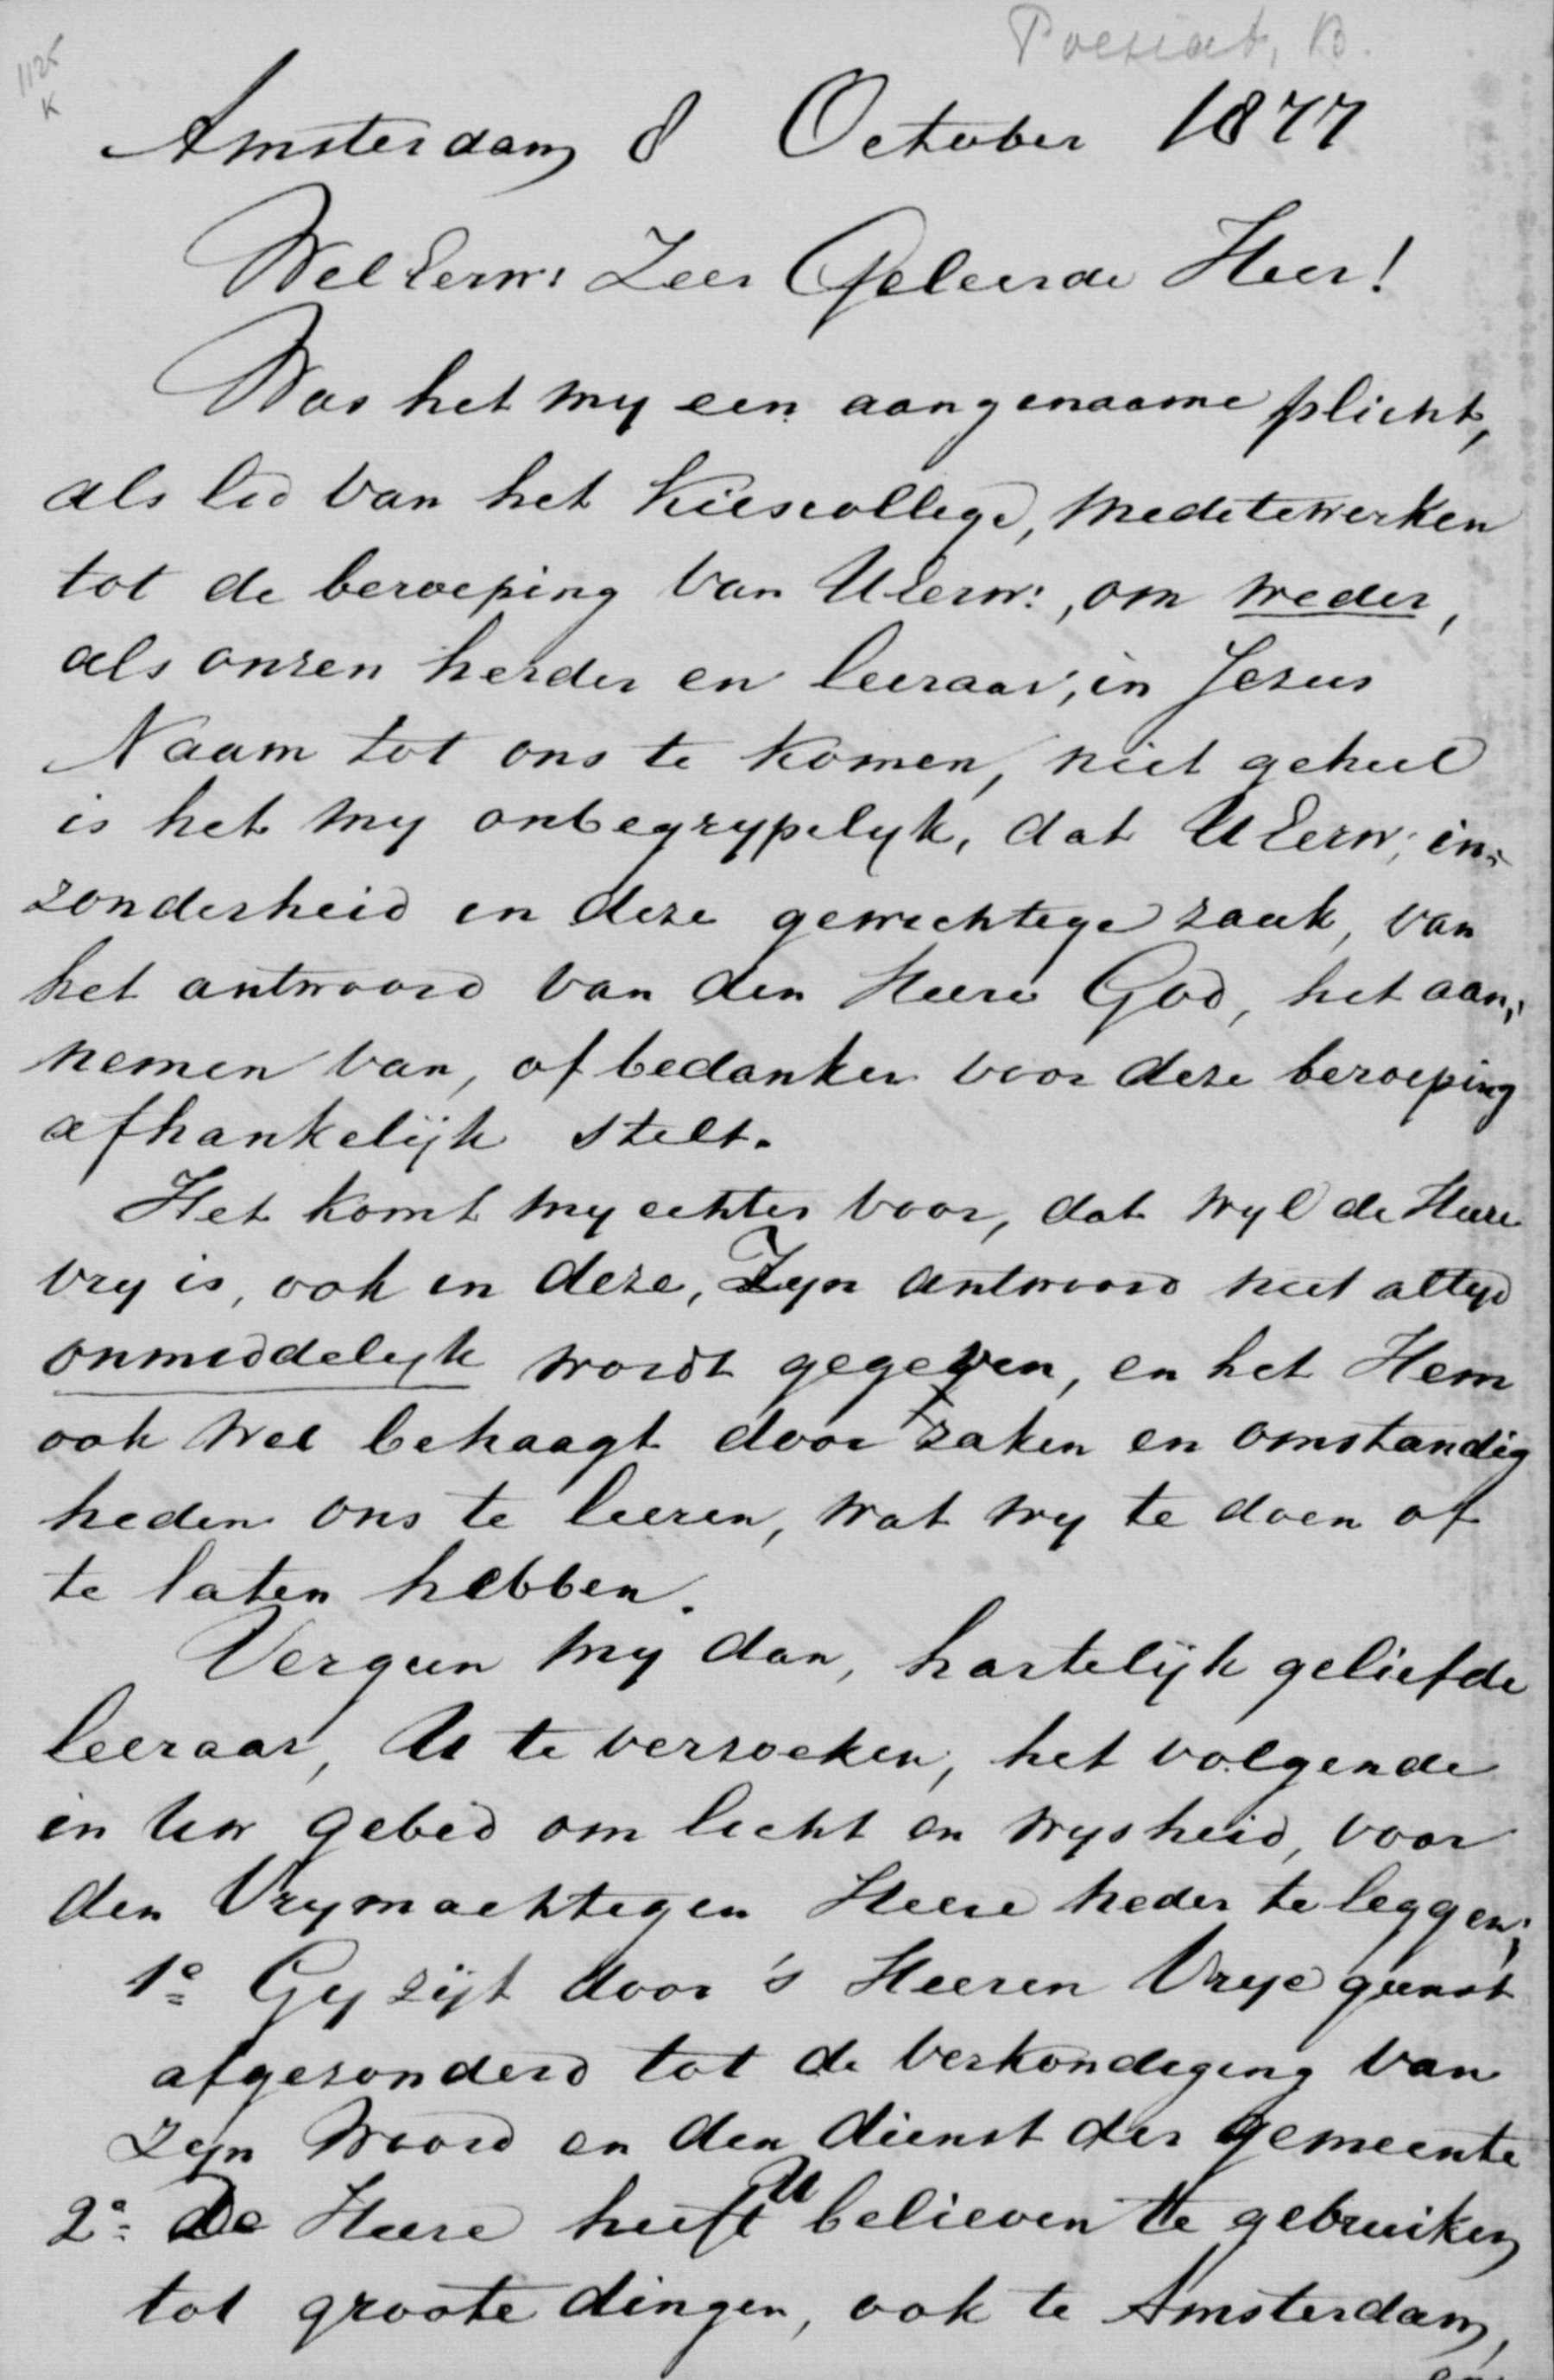 1125
K
Amsterdam 8 October 1877
WelEerw: Zeer Geleerde Heer!
Was het my een aangenaame plicht,
als lid van het Kiescollege, medetewerken
tot de beroeping van UEerw:, om weder,
als onzen herder en leeraar, in Jezus
Naam tot ons te komen, niet geheel
is het my onbegrypelyk, dat UEerw; in-
zonderheid in deze gewichtige zaak, van
het antwoord van den Heere God, het aan-
nemen van, of bedanken voor deze beroeping
afhankelijk stelt.
Het komt my echter voor, dat wyl de Heere
vry is, ook in deze, Zyn antwoord niet altyd
onmiddelyk wordt gegeven, en het Hem
ook wel behaagt door zaken en omstandig
heden ons te leeren, wat wy te doen of
te laten hebben.
Vergun my dan, hartelijk geliefde
leeraar, U te verzoeken, het volgende
in Uw gebed om licht en wysheid, voor
den Vrymachtigen Heere neder te leggen;
1º Gy zijt door 's Heeren Vrye gunst
afgezonderd tot de verkondiging van
zyn Woord en den dienst der gemeente
2º De Heere heeft U believen te gebruiken
tot groote dingen, ook te Amsterdam,